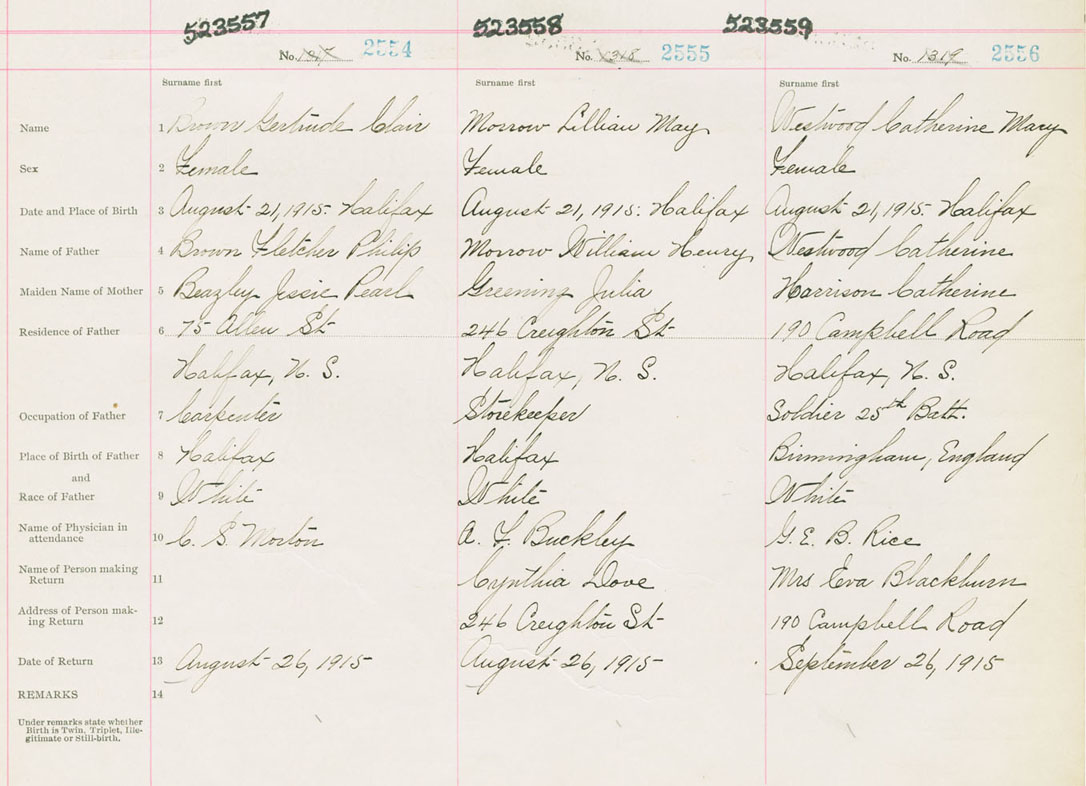 523557 523558 523559
No. 1317 2554 No. 1318 2555 No. 1319 2556
Surname first Surname first Surname first
Name 1 Brown Gertrude Clair Morrow Lillian May Westwood Catherine Mary
Sex 2 Female Female Female
Date and Place of Birth 3 August 21, 1915. Halifax August 21, 1915. Halifax August 21, 1915. Halifax
Name of Father 4 Brown Fletcher Philip Morrow William Henry Westwood Catherine
Maiden Name of Mother 5 Beazley Jessie Pearl Greening Julia Harrison Catherine
Residence of Father 6 75 Allen St 246 Creighton St 190 Campbell Road
Halifax, N. S. Halifax, N. S. Halifax, N. S.
Occupation of Father 7 Carpenter Storekeeper Soldier 25th Batt.
Place of Birth of Father 8 Halifax Halifax Birmingham, England
and
Race of Father 9 White White White
Name of Physician in
attendance 10 C. S. Morton A. F. Buckley G. E. B. Rice
Name of Person making
Return 11 Cynthia Dove Mrs Eva Blackburn
Address of Person mak-
ing Return 12 246 Creighton St 190 Campbell Road
Date of Return 13 August 26, 1915 August 26, 1915 September 26, 1915
REMARKS 14
Under remarks state whether
Birth is Twin, Triplet, Ille-
gitimate or Still-birth.